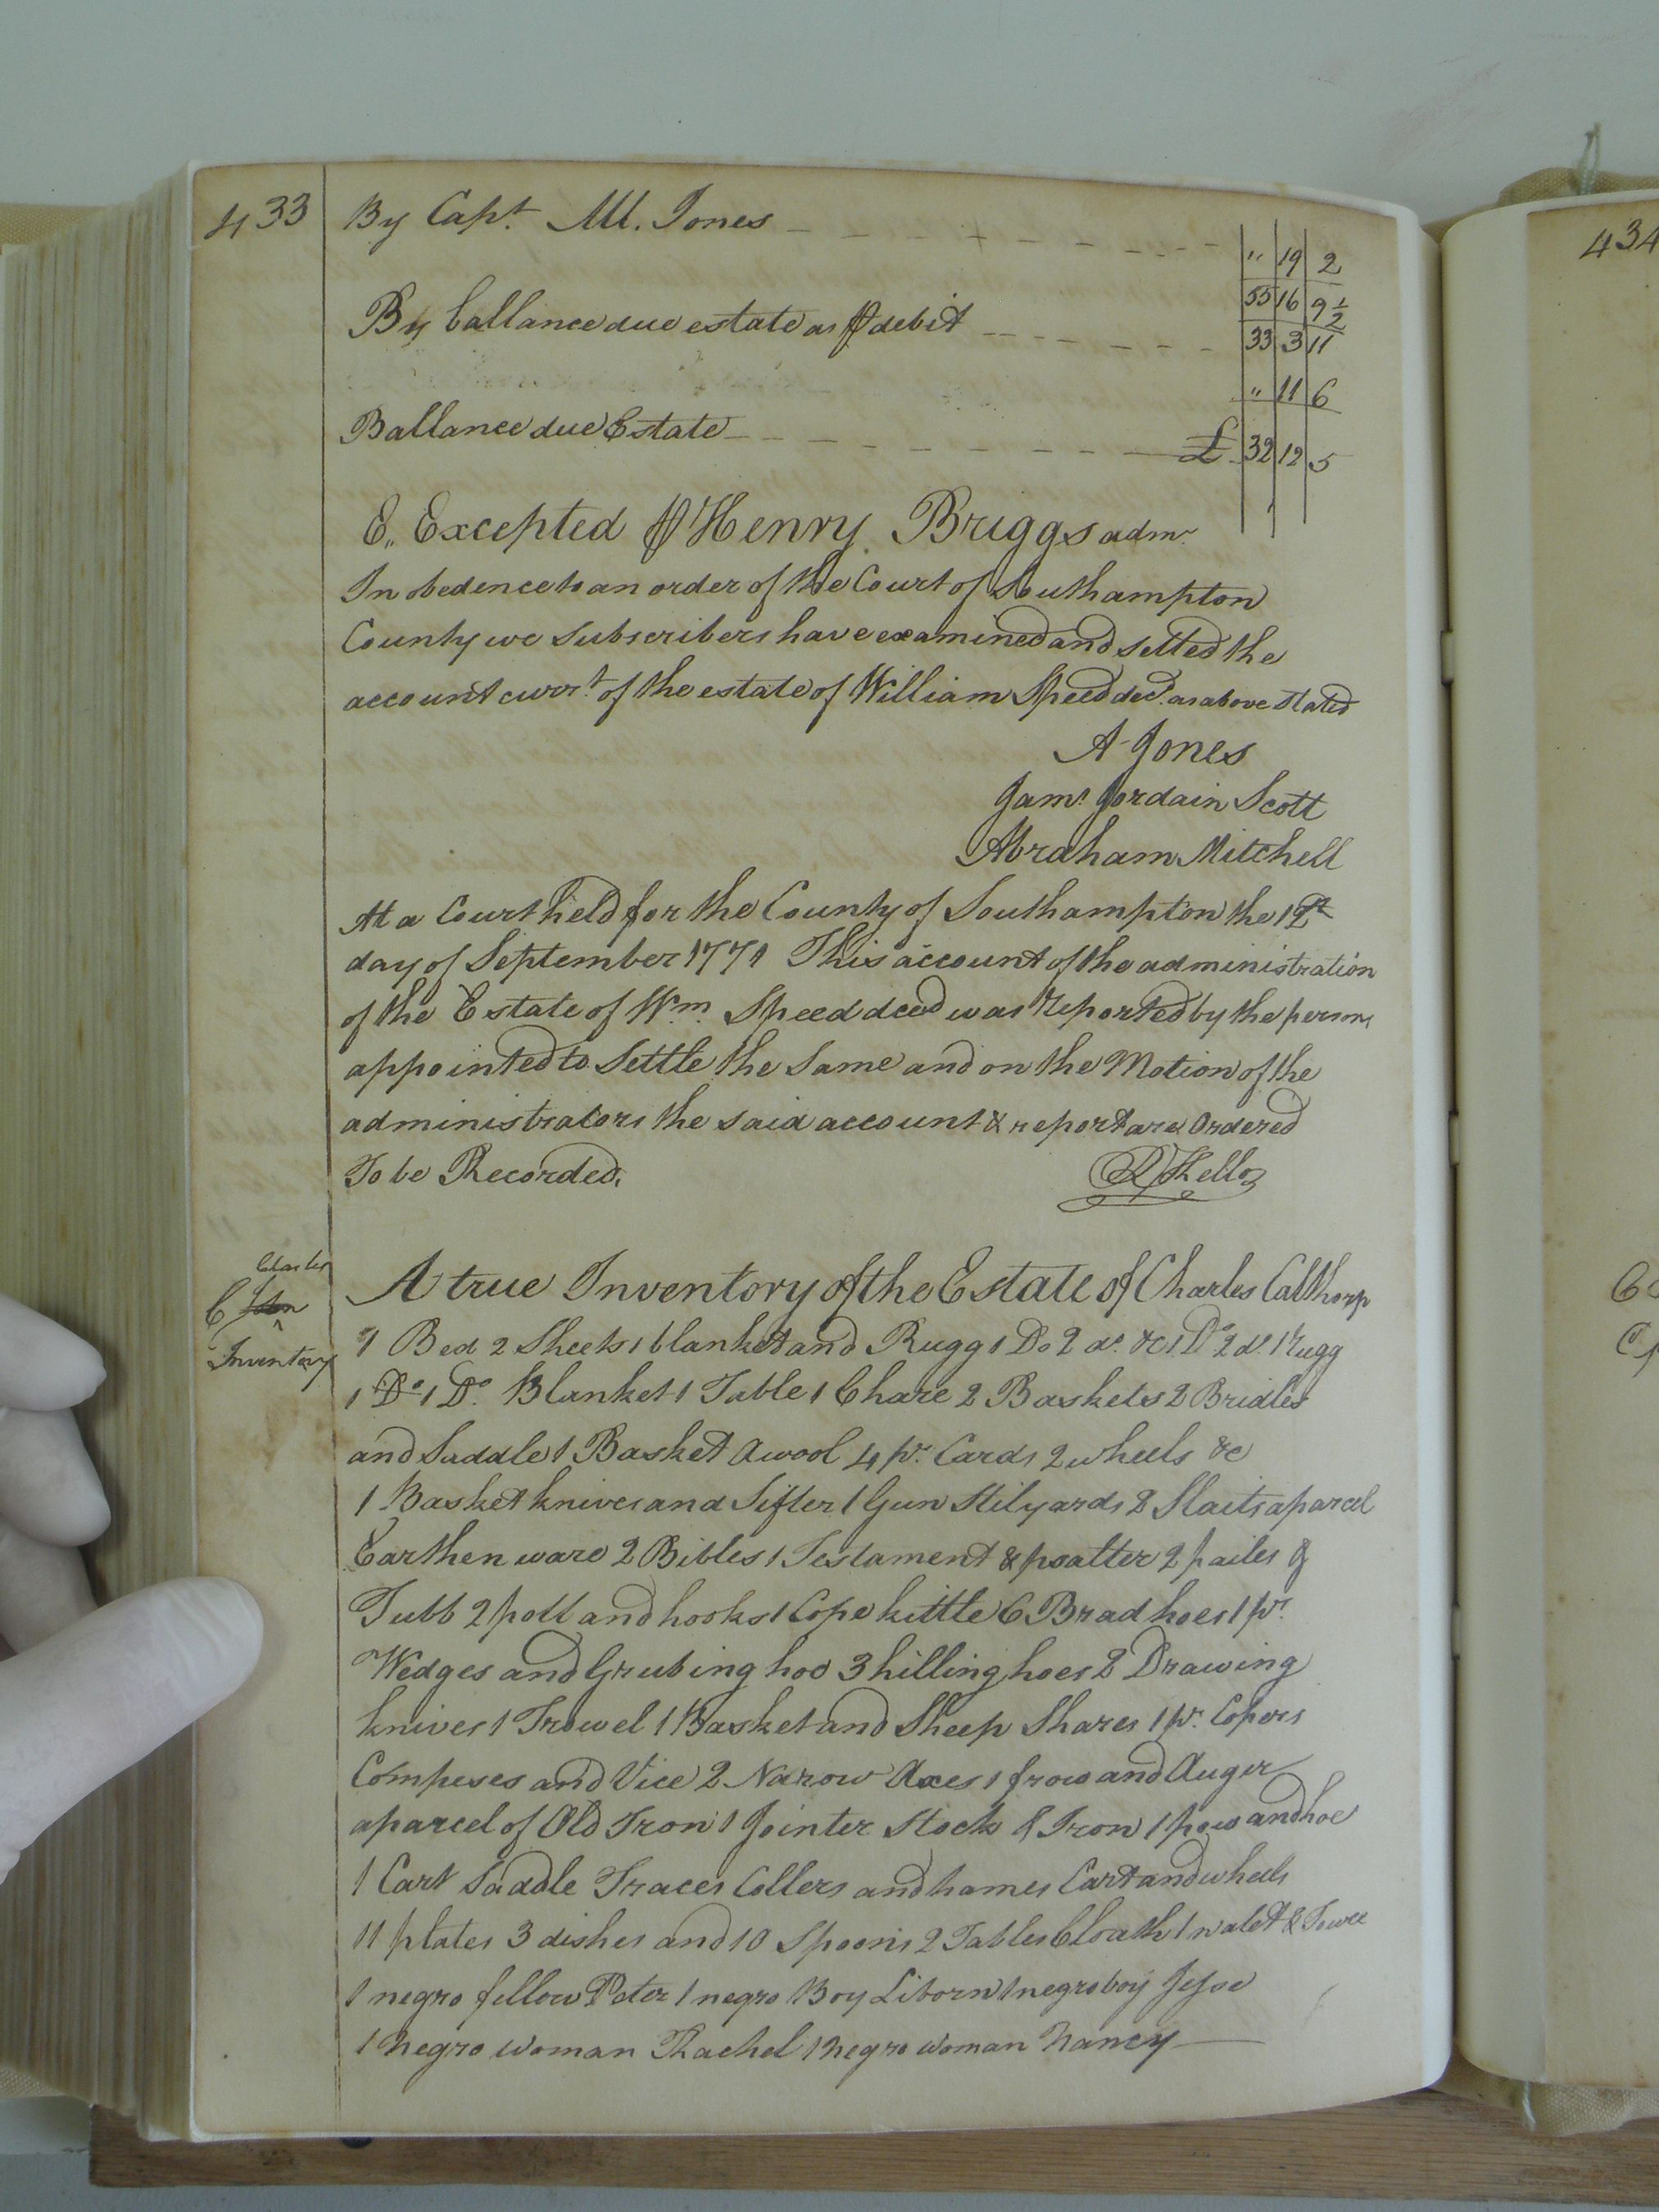 433
By Capt. M. Jones
" 19 2
55 16 9 1/2
By ballance due estate as ⅌ debit 33 3 11
" 11 6
Ballance due Estate £ 32 12 5
E,, Excepted ⅌ Henry Briggs admr.
In obedence to an order of the Court of Southampton
County we Subscribers have examined and setted the
account curr.t of the estate of William Speed decd. as above Stated
A Jones
Jams. Jordain Scott
Abraham Mitchell
At a Court held for the County of Southampton the 12th
day of September 1771 This account of the administration
of the Estate of Wm. Speed deced was Reported by the persons
appointed to Settle the Same and on the Motion of the
administrators the said account & report are Ordered
To be Recorded.
Charles
C John
^
Inventory
A true Inventory of the Estate of Charles Calthorp
1 Bed 2 Sheets 1 blanket and Rugg 1 Do 2 do. &c 1 Do 2 do. 1 rugg
1 Do 1 Do. Blanket 1 Table 1 Chare 2 Baskets 2 Bridles
and Saddle 1 Basket a wool 4 pr. Cards 2 wheels &c
1 Basket knives and Sifter 1 Gun Stilyards 2 Slaits a parcel
Earthen ware 2 Bibles 1 Testament & psalter 2 pailes &
Tubb 2 pott and hooks 1 Cope kittle 6 Brad hoes 1 pr.
Wedges and Grubing hoo 3 hilling hoes 2 Drawing
knives 1 Trowel 1 Basket and Sheep Shares 1 pr. Copers
Compeses and Vice 2 Narow Axes 1 frow and Auger
a parcel of Old Iron 1 Jointer Stock & Iron 1 pow and hoe
1 Cart Saddle Traces Collers and hames Cart and wheels
11 plates 3 dishes and 10 Spoons 2 Tables Cloath 1 walet &
1 negro fellow Peter 1 negro Boy Liborn 1 negro boy Jesse
1 Negro woman Rachel 1 Negro woman Nancy
434